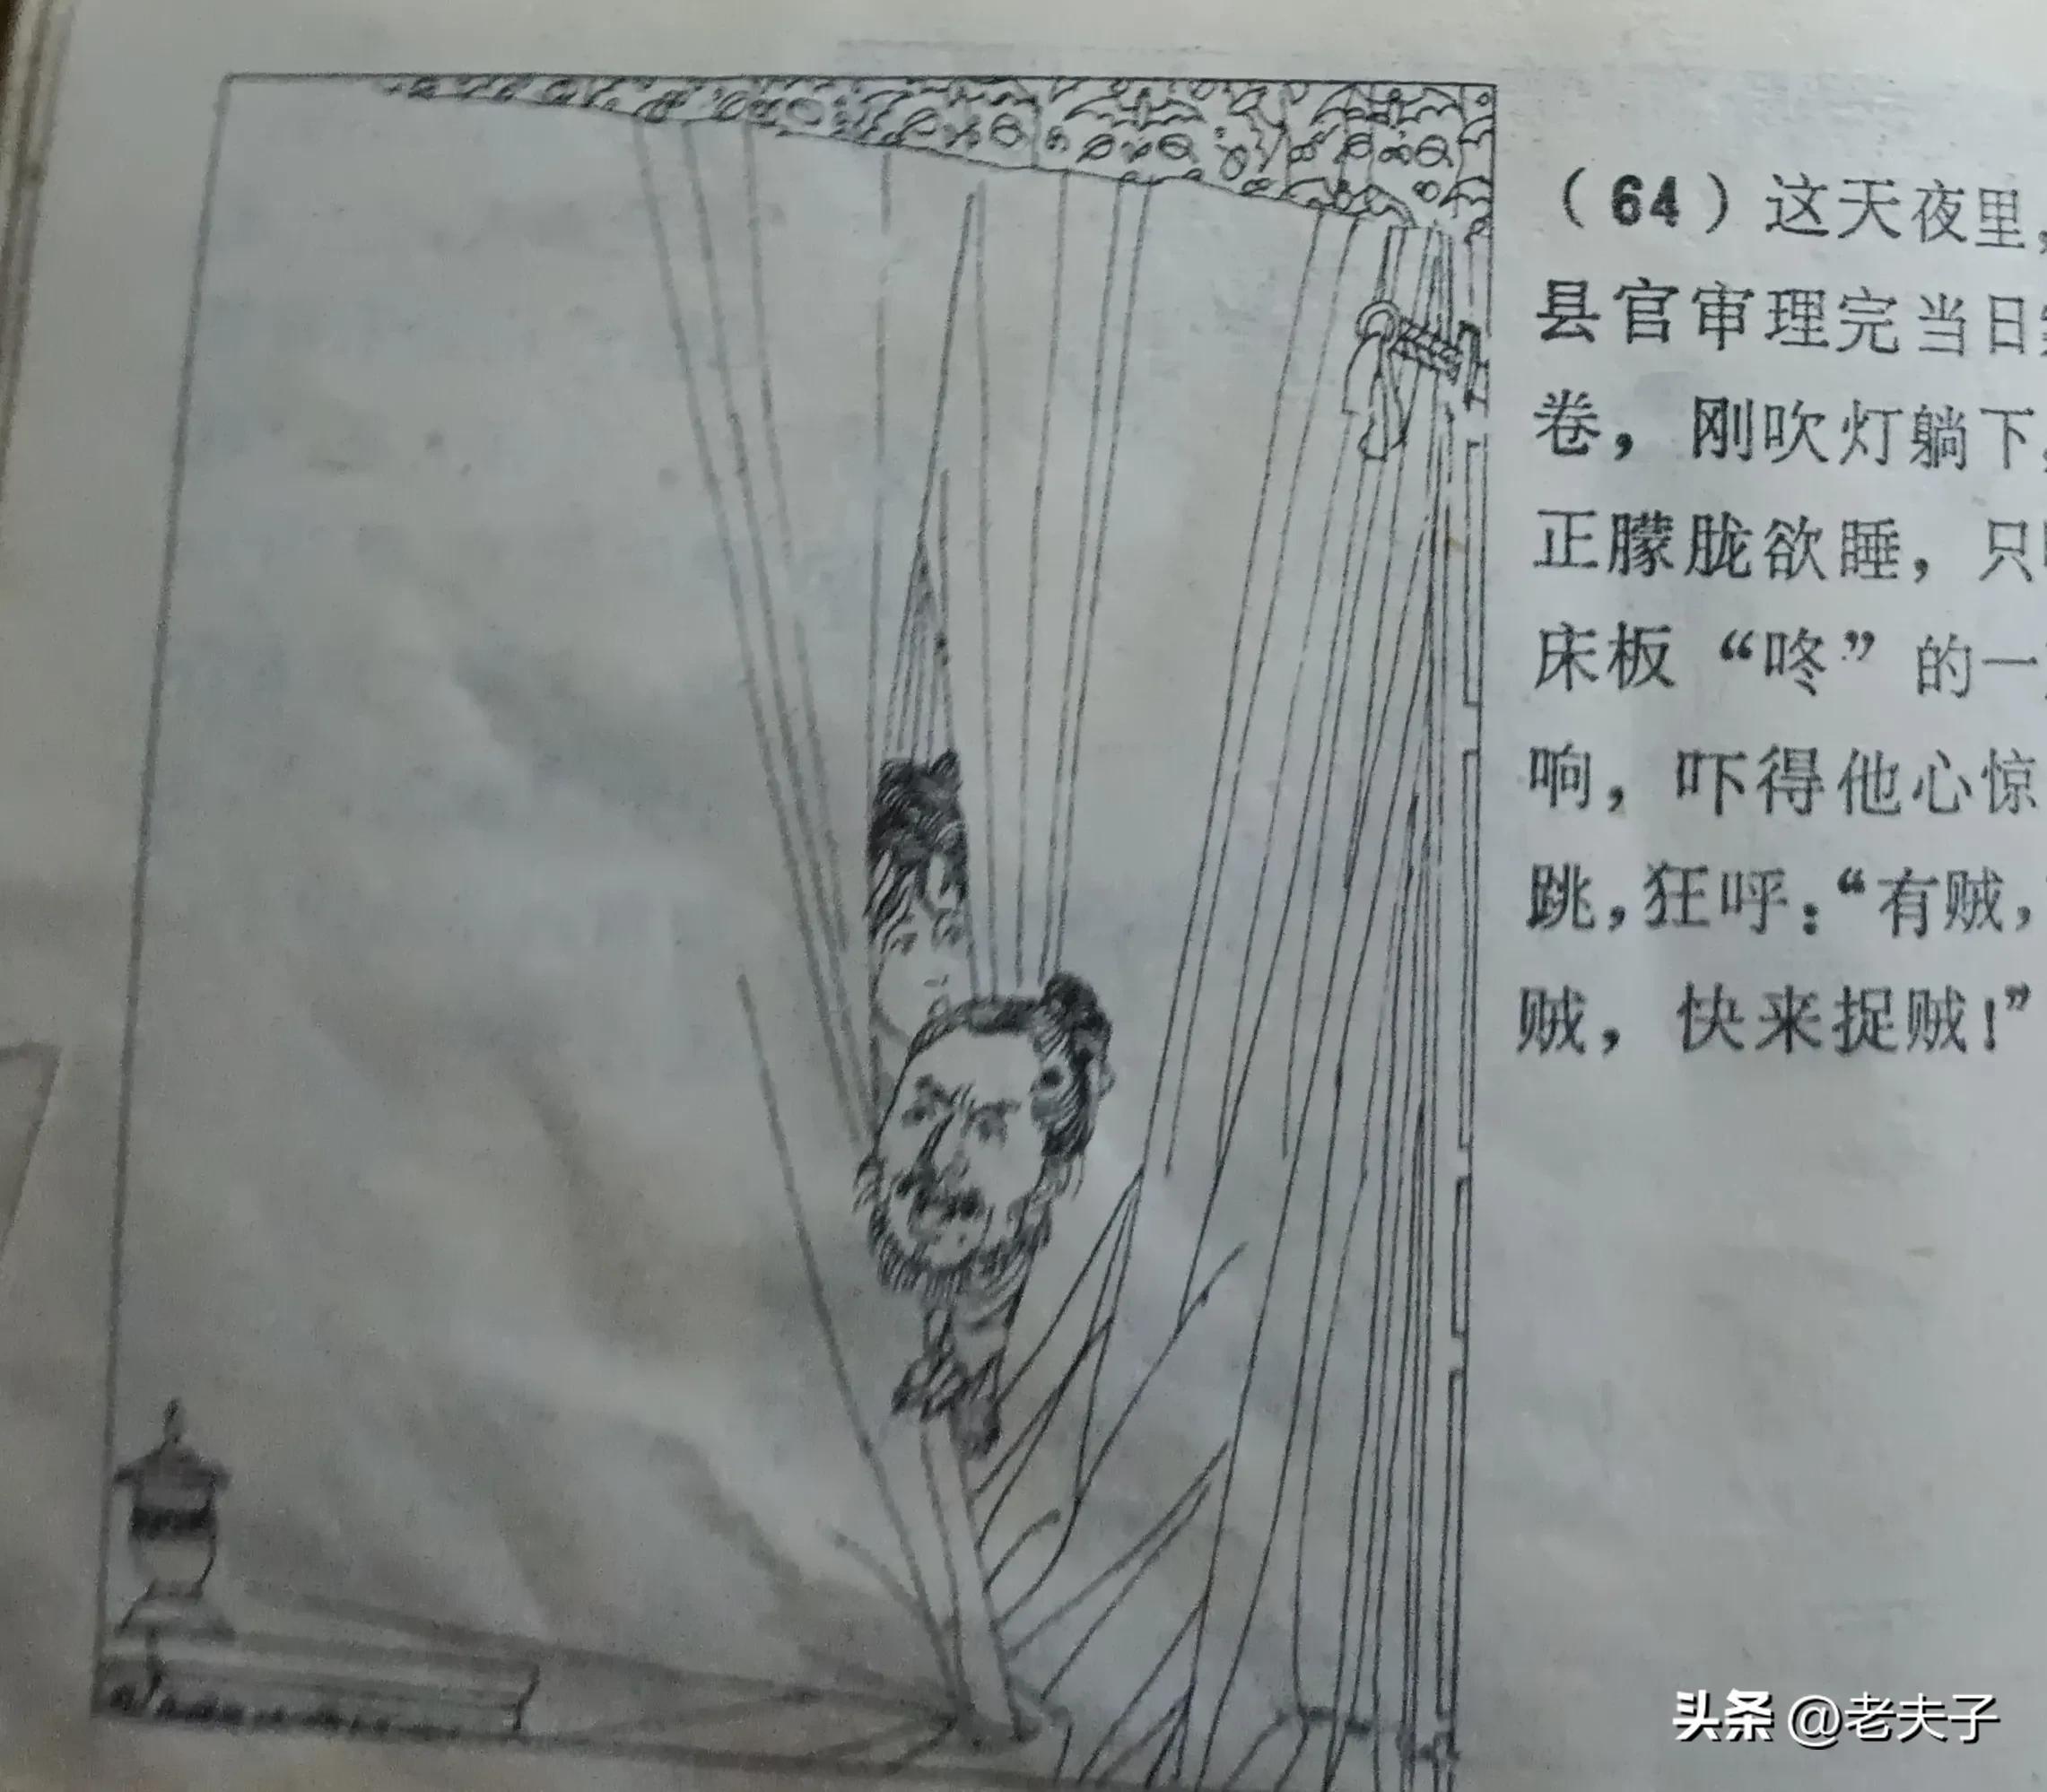 （64）这天夜里，
县官审理完当日
卷，刚吹灯躺下，
正朦胧欲睡，只
床板“咚”的一
响，吓得他心惊
跳，狂呼：“有贼，
贼，快来捉贼！”
头条 @老夫子